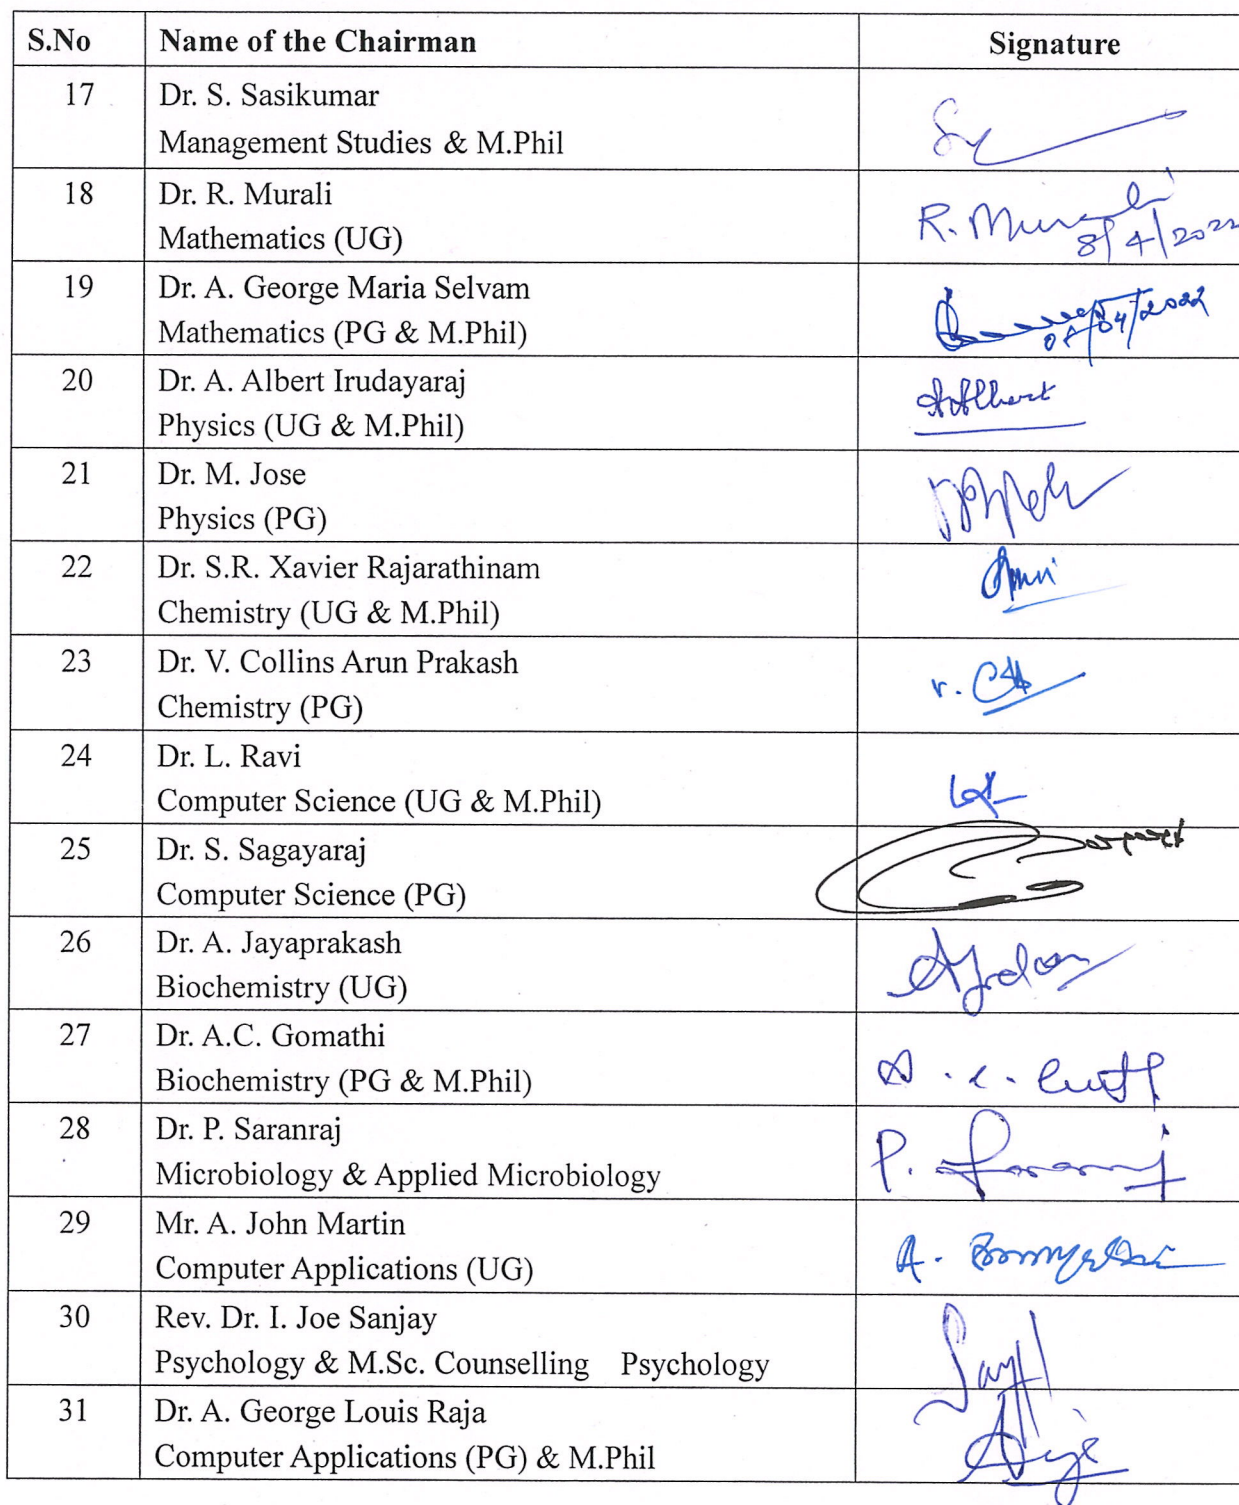 S.No Name of the Chairman Signature
17 Dr. S. Sasikumar
Management Studies & M.Phil
18 Dr. R. Murali R. Murali
Mathematics (UG) 8/4/2022
19 Dr. A. George Maria Selvam
Mathematics (PG & M.Phil) 08/04/2022
20 Dr. A. Albert Irudayaraj A. Albert
Physics (UG & M.Phil)
21 Dr. M. Jose
Physics (PG)
22 Dr. S.R. Xavier Rajarathinam
Chemistry (UG & M.Phil)
23 Dr. V. Collins Arun Prakash
Chemistry (PG)
24 Dr. L. Ravi
Computer Science (UG & M.Phil)
25 Dr. S. Sagayaraj
Computer Science (PG)
26 Dr. A. Jayaprakash
Biochemistry (UG)
27 Dr. A.C. Gomathi
Biochemistry (PG & M.Phil)
28 Dr. P. Saranraj P. Saranraj
Microbiology & Applied Microbiology
29 Mr. A. John Martin
Computer Applications (UG)
30 Rev. Dr. I. Joe Sanjay
Psychology & M.Sc. Counselling Psychology
31 Dr. A. George Louis Raja
Computer Applications (PG) & M.Phil